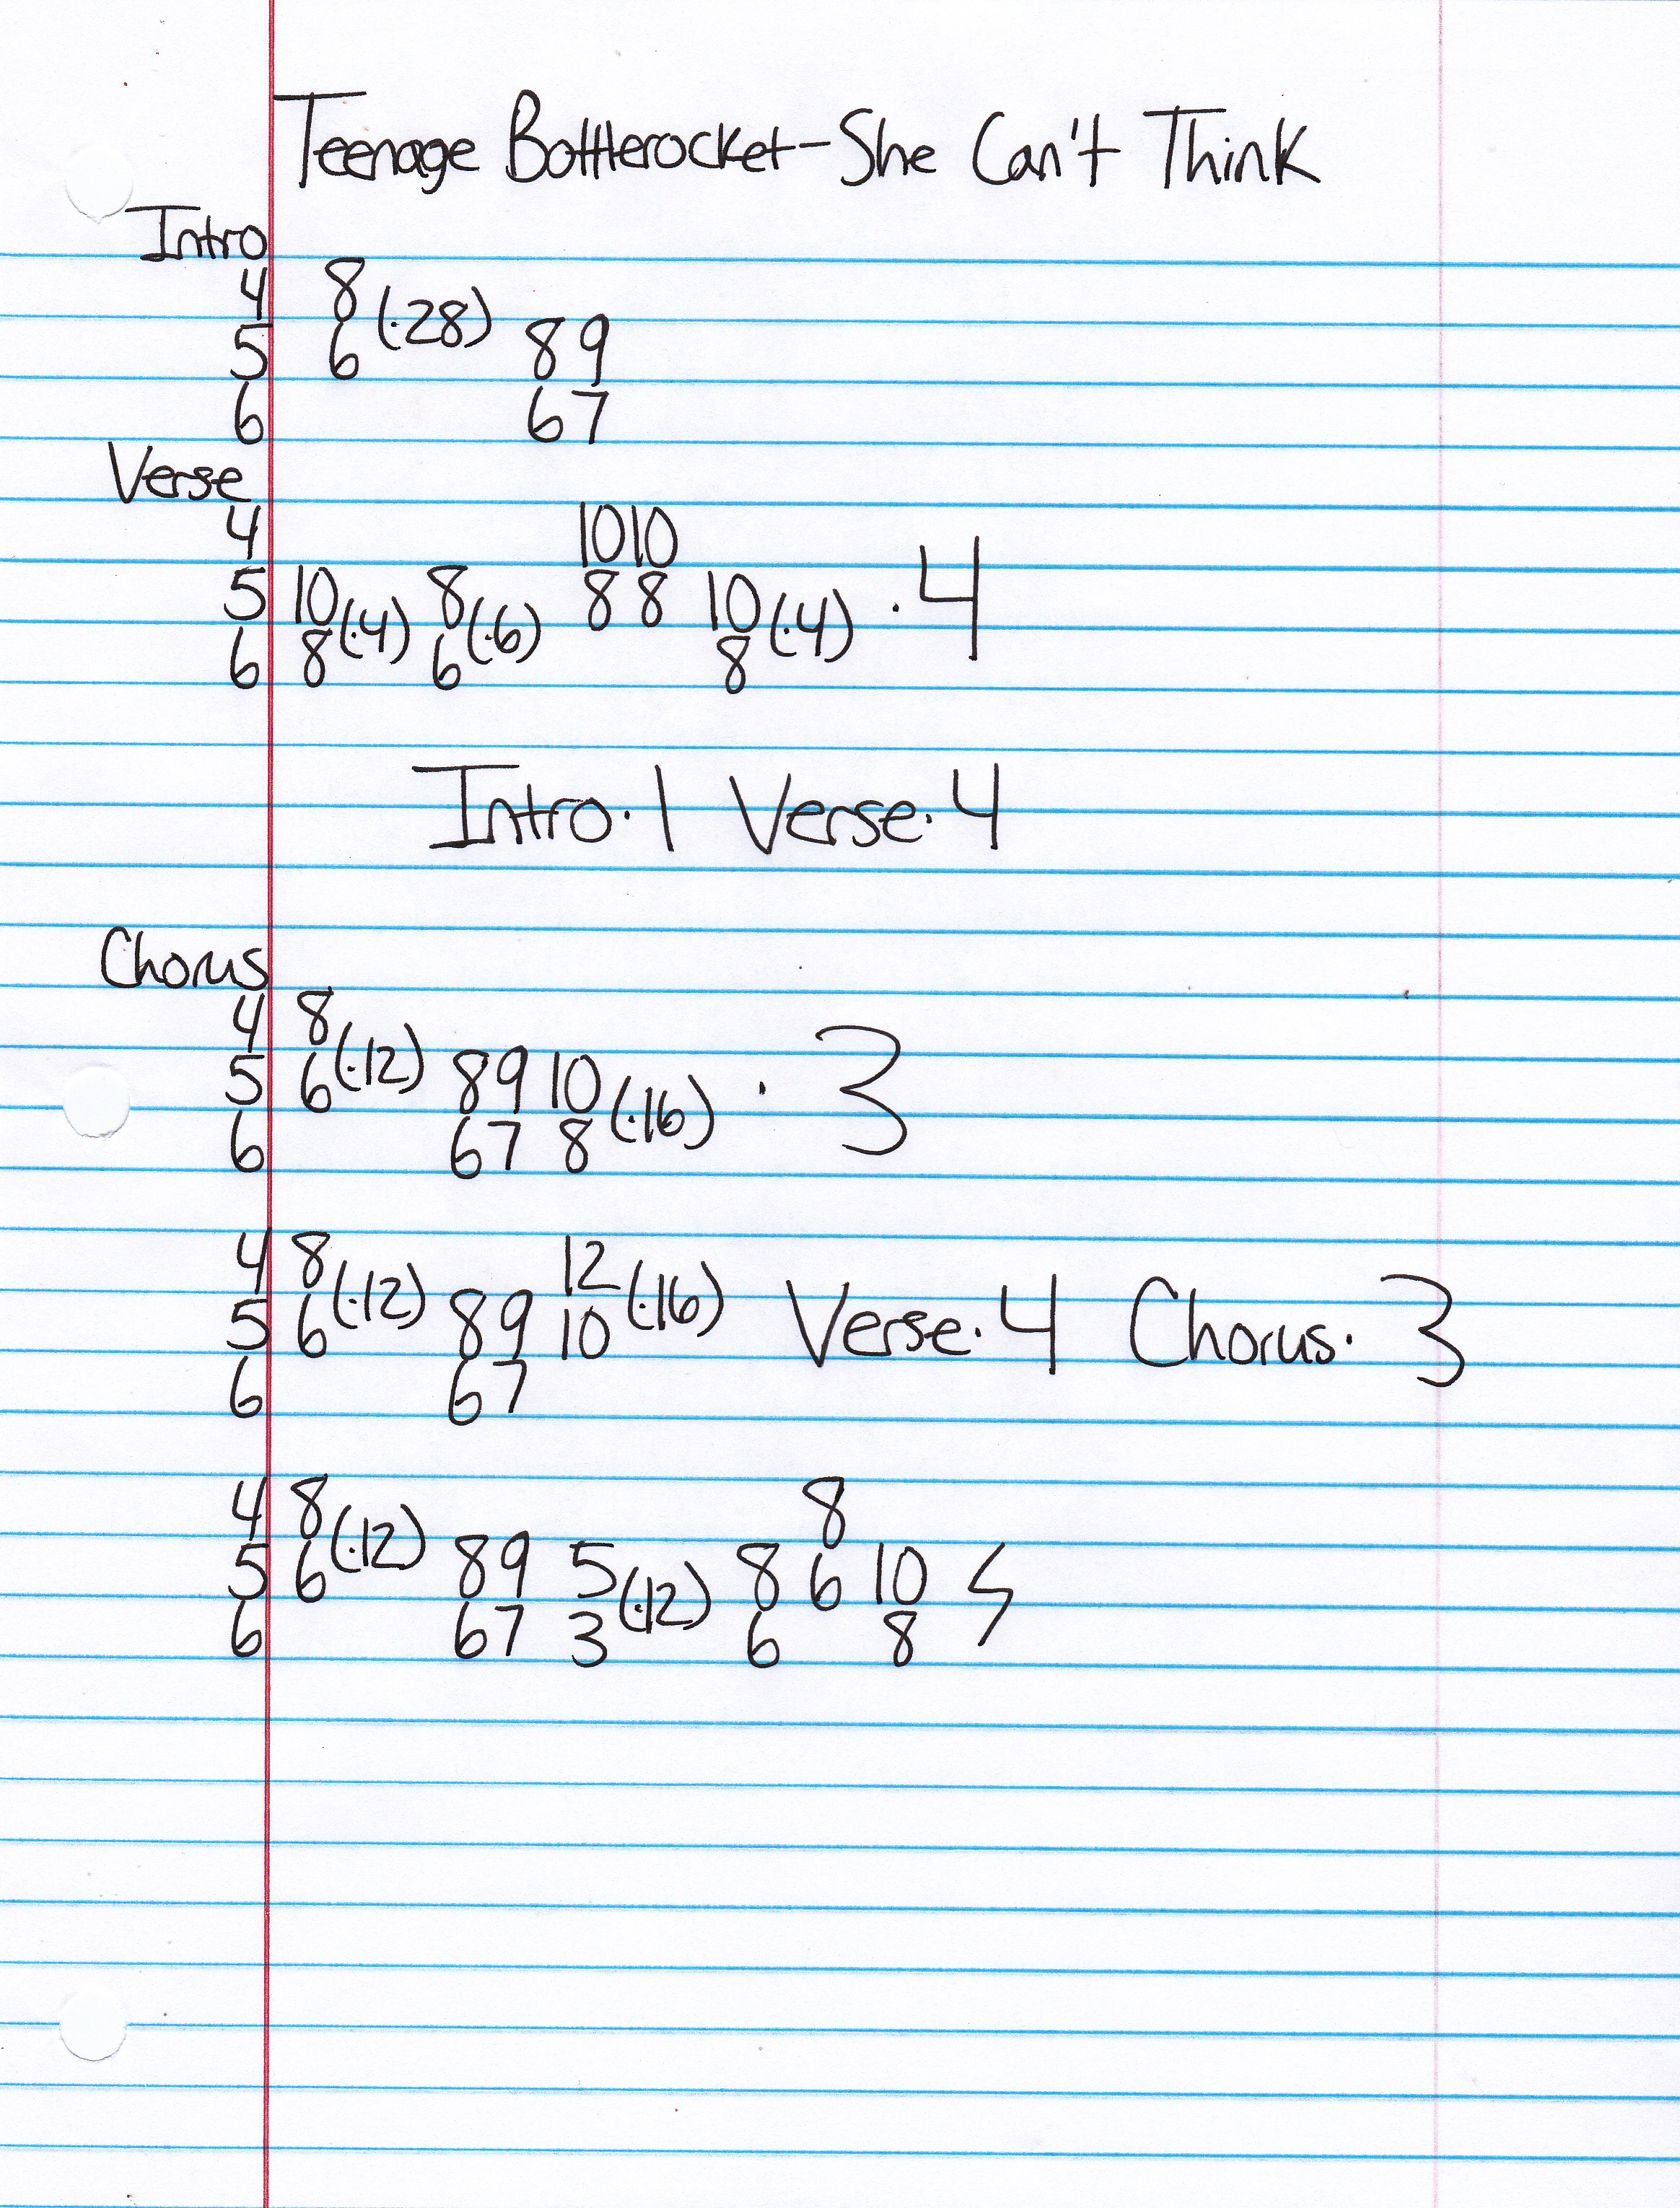 Teenage Bottlerocket-She Can't Think
Intro
4 8
5 6 (·28) 8 9
6 6 7
Verse
4 10 10
5 10 (·4) 8 (·6) 8 8 10 (·4) · 4
6 8 6 8
Intro·1 Verse·4
Chorus
4 8
5 6 (·12) 8 9 10 (·16) · 3
6 6 7 8
4 8 12
5 6 (·12) 8 9 10 (·16) Verse·4 Chorus·3
6 6 7
4 8 8
5 6 (·12) 8 9 5 (·12) 8 6 10
6 6 7 3 6 8